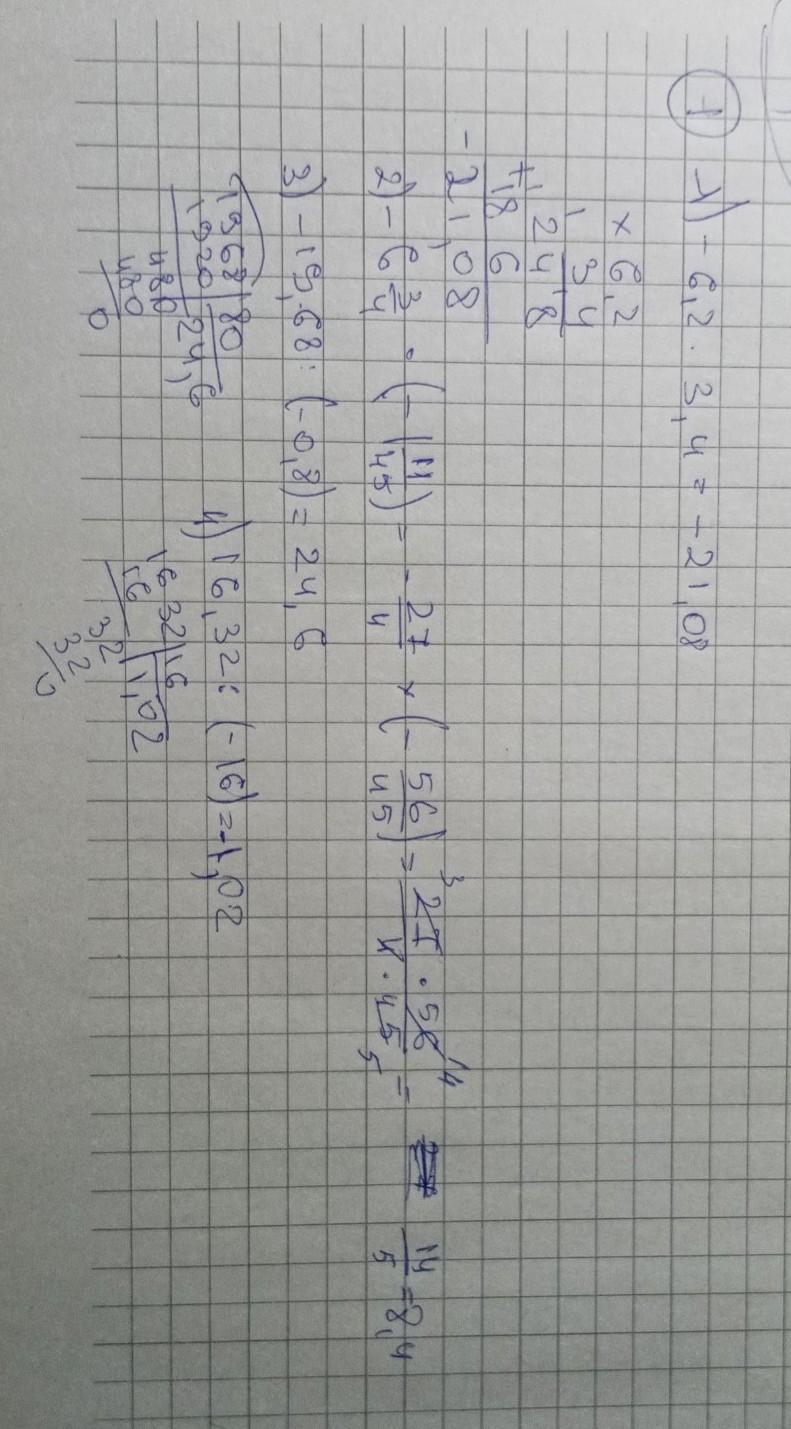 1 1) - 6,2 · 3,4 = - 21,08
× 6,2
3,4
1
248
+ 186
- 21,08
2) - 6 3/4 · (- 1 11/45) = - 27/4 × (- 56/45) = 27 · 56 / 4 · 45 = 14/5 = 8,4
3 14
5
3) - 19,68 : (-0,8) = 24,6
1968 | 80
1920 | 24,6
480
480
0
4) 16,32 : (-16) = -1,02
16 32 | 16
16 | 1,02
32
32
0